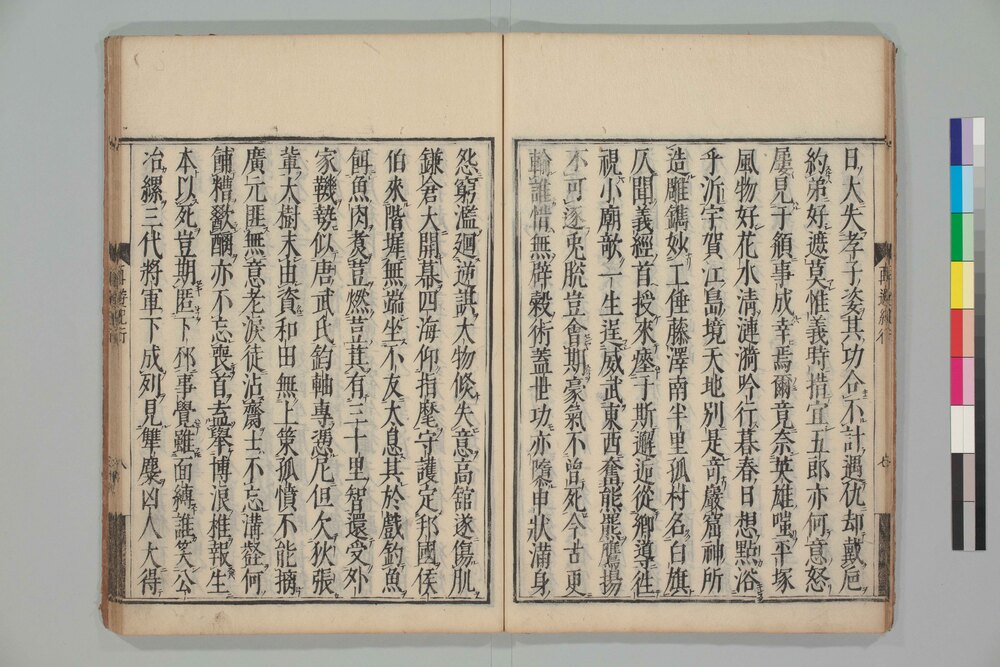 日大失孝子姿其功合不計遇仇却戴卮
約弟好遮莫惟義時措宜五郎亦何意怒
屢見于顔事成幸焉爾竟奈英雄嗤平塚
風物好花水清漣漪吟行暮春日想點浴
乎沂宇賀江島境天地別是奇巖窟神所
造雕鐫妙工倕藤澤南半里孤村名白旗
仄聞義經首授來瘞于斯邂逅從鄉導徃
視小廟敵一生逞威武東西奮熊羆鷹揚
不可逐兎脫豈會期豪氣不曾死今古更
輸誰惜無辟穀術蓋世功亦隳申狀滿身
怨窮濫廻逆謀大物倏失意高舘遂傷肌
鎌倉大開幕四海仰指麾守護定邦國侯
伯來階墀無端坐不友太息其於戲釣魚
餌魚肉煑荳燃荳萁有三十里智還受外
家鞿勢似唐武氏鈞軸專憑尼但欠狄張
輩大樹末由資和田無上策孤憤不能摛
廣元匪無意老淚徒沾鬚士不忘溝壑何
餔糟歠醨亦不忘喪首盍擧博浪椎報生
本以死豈期匿下邳事覺雖面縛誰笑公
冶縲三代將軍下成列見隼麋凶人大得